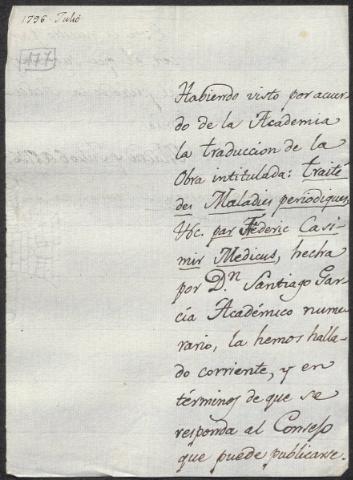 1796 Julio
177
Habiendo visto por acuer
do de la Academia
la traduccion de la
Obra intitulada: traité
des Maladies periodiques,
&c. par Féderic Casi
mir Medicus, hecha
por D.n Santiago Gar
cía Académico nume
rario, la hemos halla
do corriente, y en
términos de que se
responda al Consejo
que puede publicarse.